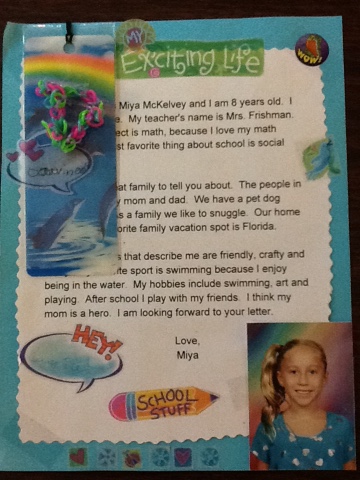 MY
Exciting Life
WOW!
Miya McKelvey and I am 8 years old. I
My teacher's name is Mrs. Frishman.
is math, because I love my math
favorite thing about school is social
family to tell you about. The people in
my mom and dad. We have a pet dog
a family we like to snuggle. Our home
family vacation spot is Florida.
that describe me are friendly, crafty and
sport is swimming because I enjoy
being in the water. My hobbies include swimming, art and
playing. After school I play with my friends. I think my
mom is a hero. I am looking forward to your letter.
HEY!
Love,
Miya
SCHOOL
STUFF